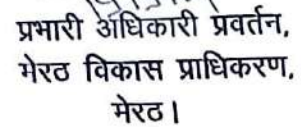 प्रभारी अधिकारी प्रवर्तन,
मेरठ विकास प्राधिकरण,
मेरठ।